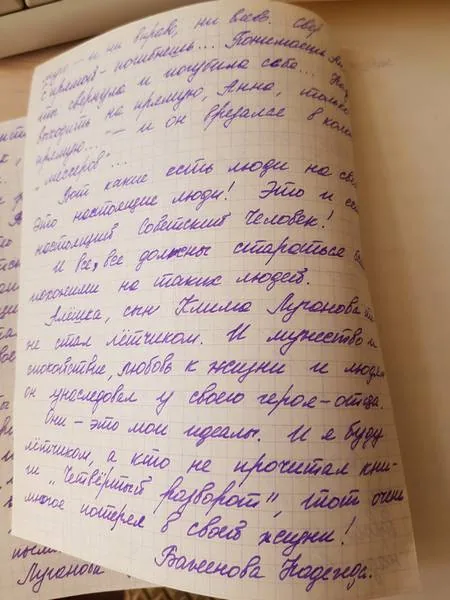 и ни вправ, ни влев. Свер
с прямой – погибнешь... Понимаешь Ан
ты свернула и погубила себя... На
выходить на прямую, Анна, только
прямую..." — и он врезался в кол
"мессеров"...
Вот какие есть люди на св
Это настоящие люди! Это и ес
настоящий Советский Человек!
И все, все должны стараться
похожими на таких людей.
Алёшка, сын Клима Луганова
не стал лётчиком. И мужество и
спокойствие, любовь к жизни и людям
он унаследовал у своего героя-отца.
Они – это мои идеалы. И я буду
лётчиком, а кто не прочитал кни-
ги "Четвёртый разворот", тот очень
многое потерял в своей жизни!
Баженова Надежда.
Луганова